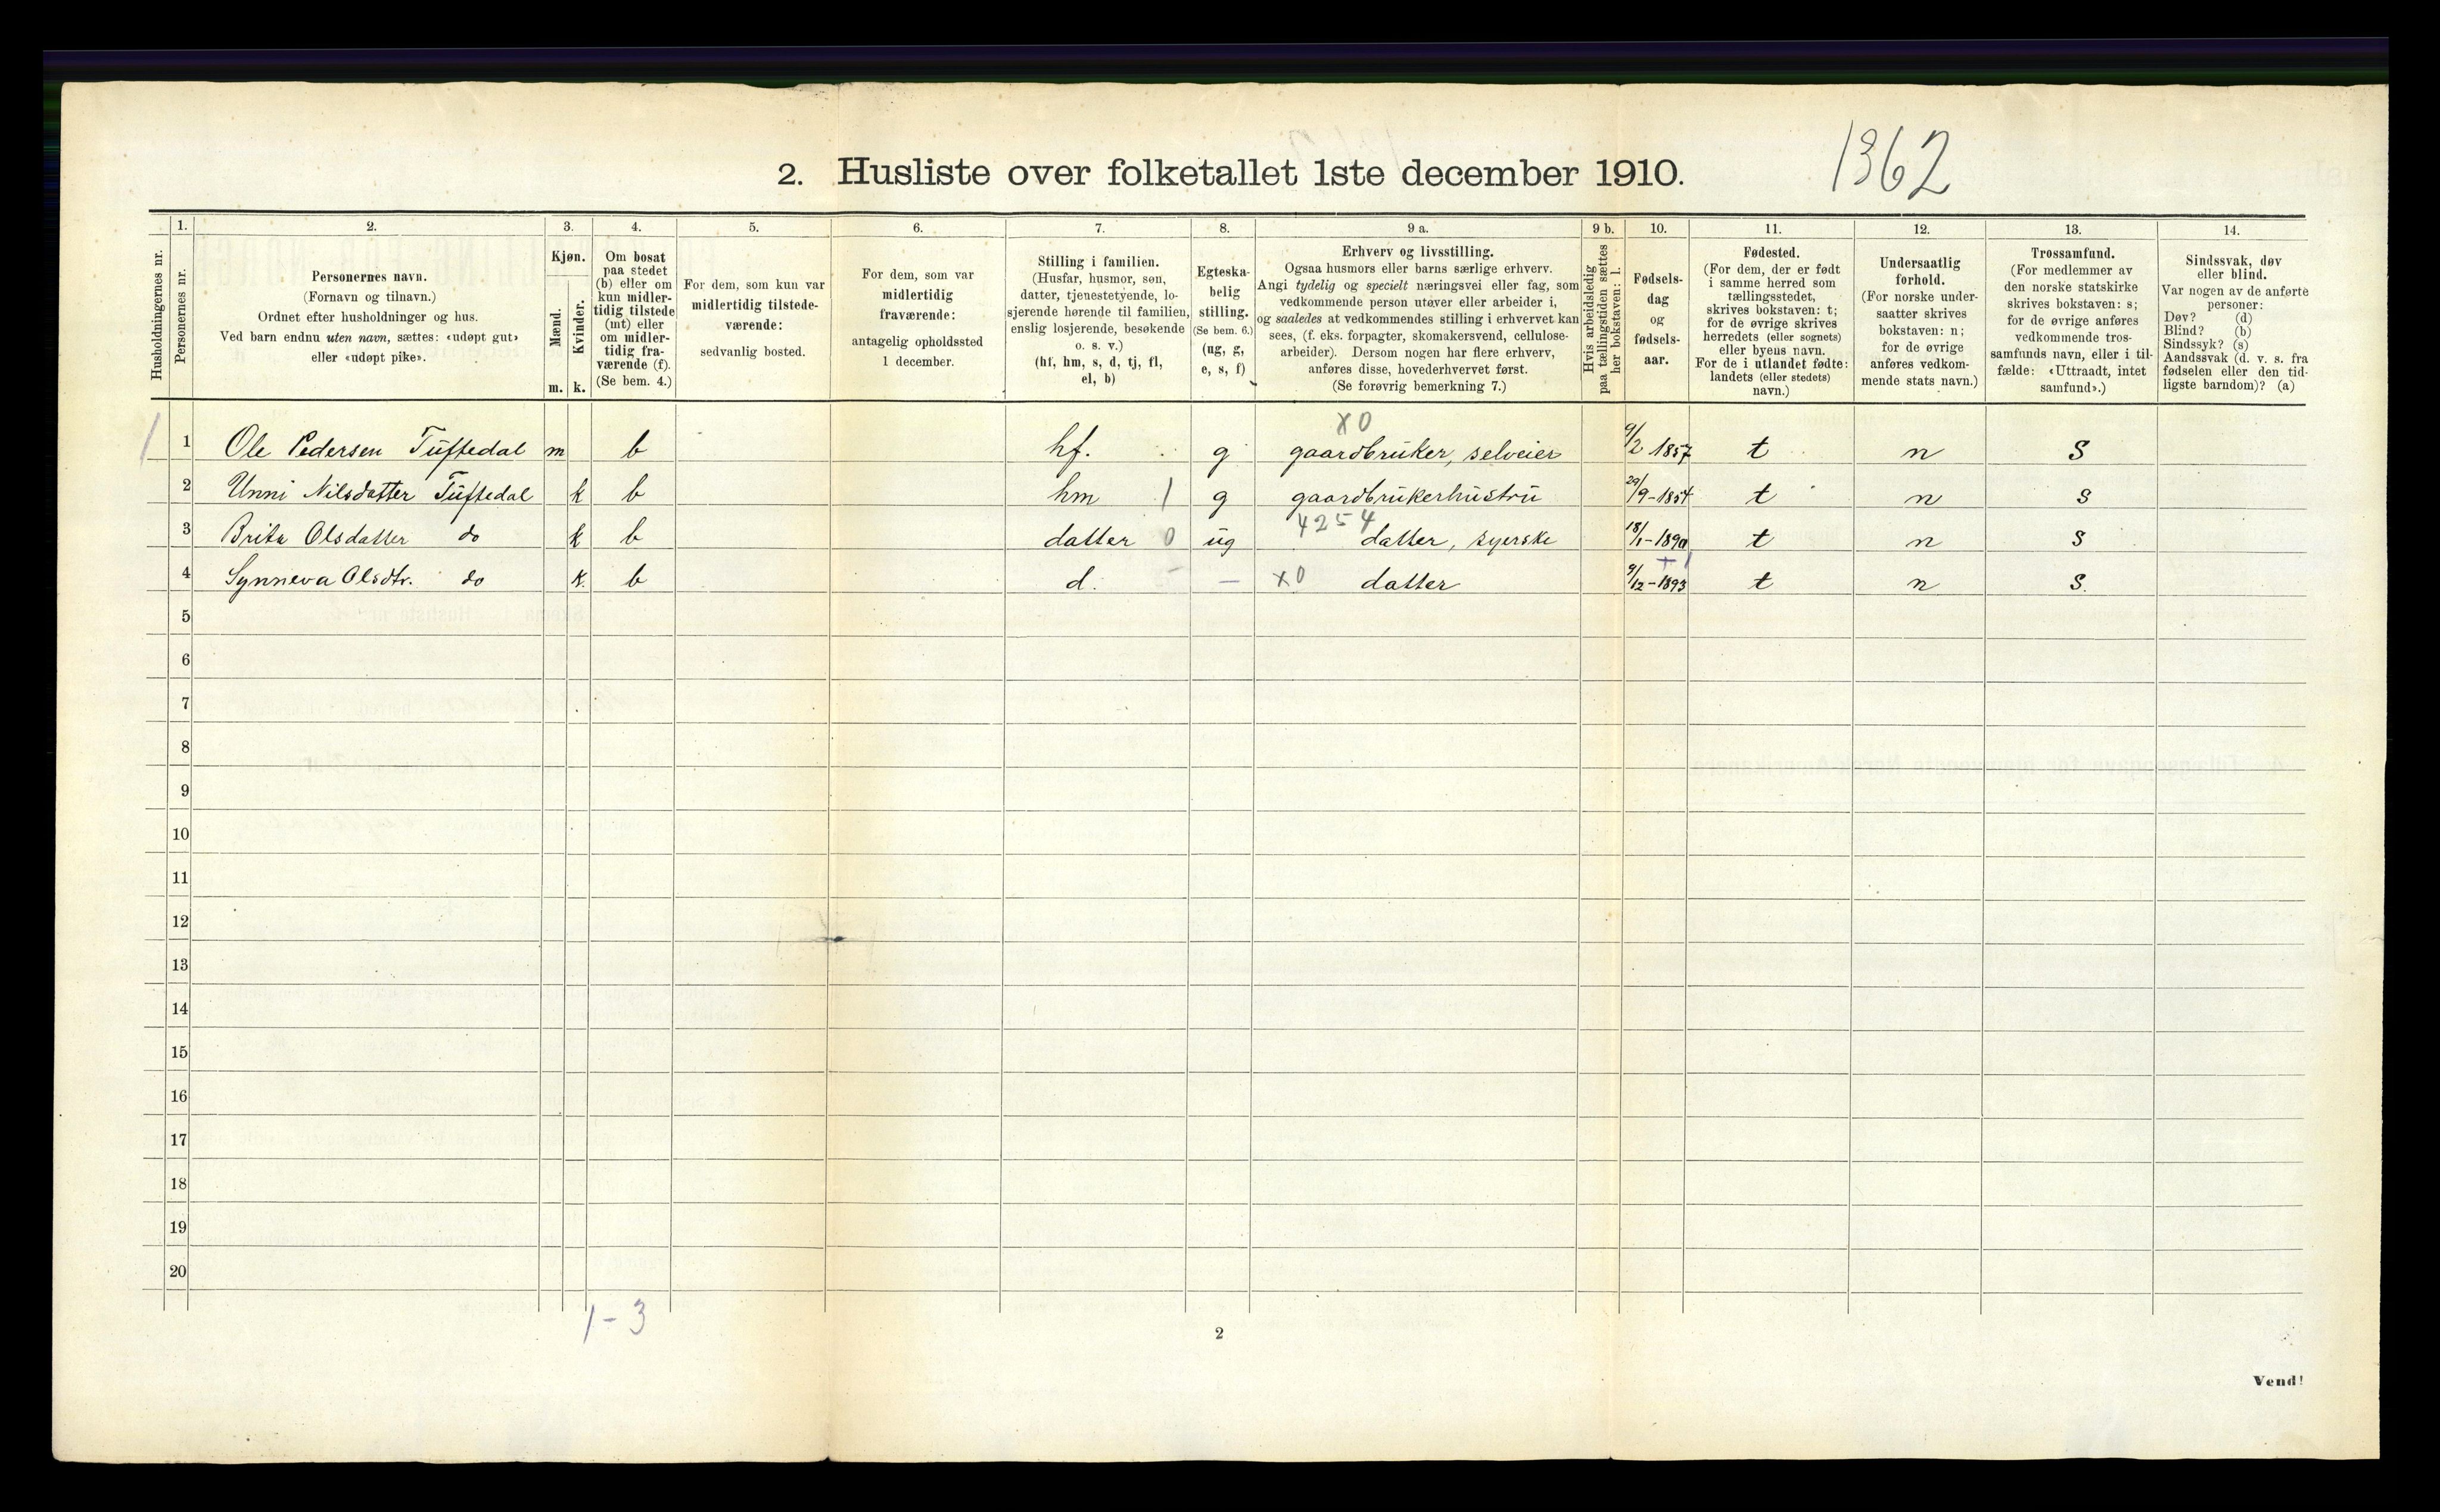 1362
2. Husliste over folketallet 1ste december 1910.
Husholdningernes nr.
1.
Personernes nr.
2.
Personernes navn.
(Fornavn og tilnavn.)
Ordnet efter husholdninger og hus.
Ved barn endnu uten navn, sættes: «udøpt gut»
eller «udøpt pike».
3.
Kjøn.
Mænd.
Kvinder.
m. k.
4.
Om bosat
paa stedet
(b) eller om
kun midler-
tidig tilstede
(mt) eller
om midler-
tidig fra-
værende (f).
(Se bem. 4.)
5.
For dem, som kun var
midlertidig tilstede-
værende:
sedvanlig bosted.
6.
For dem, som var
midlertidig
fraværende:
antagelig opholdssted
1 december.
7.
Stilling i familien.
(Husfar, husmor, søn,
datter, tjenestetyende, lo-
sjerende hørende til familien,
enslig losjerende, besøkende
o. s. v.)
(hf, hm, s, d, tj, fl,
el, b)
8.
Egteska-
belig
stilling.
(Se bem. 6.)
(ug, g,
e, s, f)
9 a.
Erhverv og livsstilling.
Ogsaa husmors eller barns særlige erhverv.
Angi tydelig og specielt næringsvei eller fag, som
vedkommende person utøver eller arbeider i,
og saaledes at vedkommendes stilling i erhvervet kan
sees, (f. eks. forpagter, skomakersvend, cellulose-
arbeider). Dersom nogen har flere erhverv,
anføres disse, hovederhvervet først.
(Se forøvrig bemerkning 7.)
9 b.
Hvis arbeidsledig
paa tællingstiden sættes
her bokstaven: l.
10.
Fødsels-
dag
og
fødsels-
aar.
11.
Fødested.
(For dem, der er født
i samme herred som
tællingsstedet,
skrives bokstaven: t;
for de øvrige skrives
herredets (eller sognets)
eller byens navn.
For de i utlandet fødte:
landets (eller stedets)
navn.)
12.
Undersaatlig
forhold.
(For norske under-
saatter skrives
bokstaven: n;
for de øvrige
anføres vedkom-
mende stats navn.)
13.
Trossamfund.
(For medlemmer av
den norske statskirke
skrives bokstaven: s;
for de øvrige anføres
vedkommende tros-
samfunds navn, eller i til-
fælde: «Uttraadt, intet
samfund».)
14.
Sindssvak, døv
eller blind.
Var nogen av de anførte
personer:
Døv? (d)
Blind? (b)
Sindssyk? (s)
Aandssvak (d. v. s. fra
fødselen eller den tid-
ligste barndom)? (a)
X0
1 1 Ole Pedersen Tuftedal m b hf. g gaardbruker, selveier 9/2 1857 t n s
2 Unni Nilsdatter Tuftedal k b hm 1 g gaardbrukerhustru 29/9-1854 t n s
4254
3 Brita Olsdatter do k b datter 0 ug datter, syerske 18/1-1890 t n s
4 Synneva Olsdtr. do k. b d. — x0 datter 9/12-1893 t n s.
5
6
7
8
9
10
11
12
13
14
15
16
17
18
19
20
1-3
2
Vend!